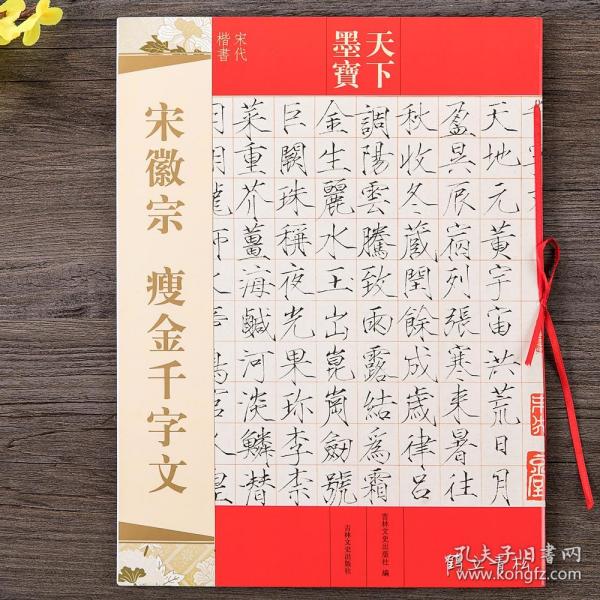 天下
墨寶
宋代
楷書
宋徽宗 瘦金千字文
天地元黃宇宙洪荒日月
盈昃辰宿列張寒来暑往
秋收冬藏閏餘成歲律呂
調陽雲騰致雨露結爲霜
金生麗水玉出崑崗劒號
巨闕珠稱夜光果珍李柰
菜重芥薑海鹹河淡鱗潛
吉林文史出版社 編
吉林文史出版社
孔夫子旧书网
www.kongfz.com
鹤立青松